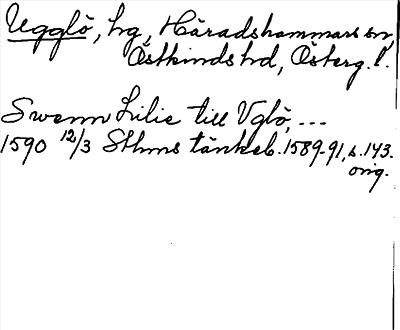 Ugglö, hg, Häradshammars sn,
Östkinds hd, Österg. l.
Swenn Lilie till Vglö, ...
1590 12/3 Sthms tänkeb. 1589-91, s. 143.
orig.